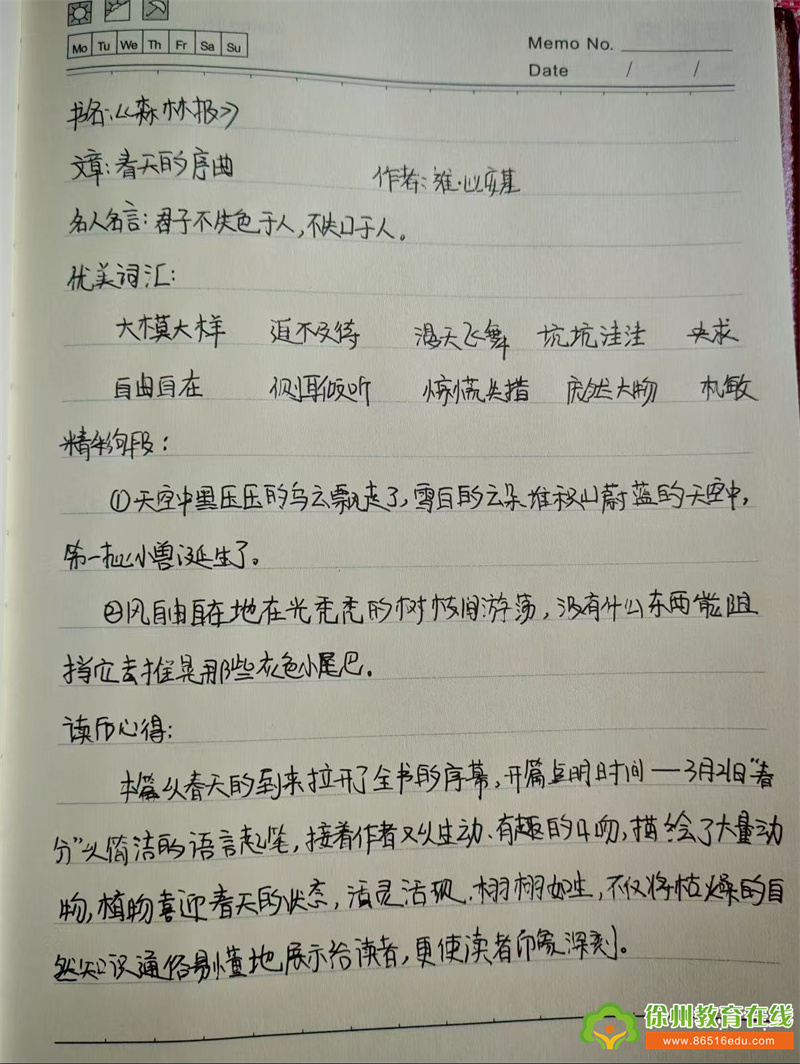 Mo Tu We Th Fr Sa Su
Memo No.
Date / /
书名:《森林报》
文章:春天的序曲 作者:维·比安基
名人名言:君子不失色于人,不失口于人。
优美词汇:
大模大样 迫不及待 漫天飞舞 坑坑洼洼 央求
自由自在 侧耳倾听 惊慌失措 庞然大物 机敏
精彩句段:
①天空中黑压压的乌云飘走了,雪白的云朵堆积山蔚蓝的天空中,
第一批小兽诞生了。
②风自由自在地在光秃秃的树枝间游荡,没有什么东西能阻
挡它去摇晃那些灰色小尾巴。
读后心得:
本篇以春天的到来拉开了全书的序幕,开篇点明时间——3月21日“春
分”以简洁的语言起笔,接着作者又以生动、有趣的口吻,描绘了大量动
物,植物喜迎春天的状态,活灵活现,栩栩如生,不仅将枯燥的自
然知识通俗易懂地展示给读者,更使读者印象深刻。
徐州教育在线
www.86516edu.com